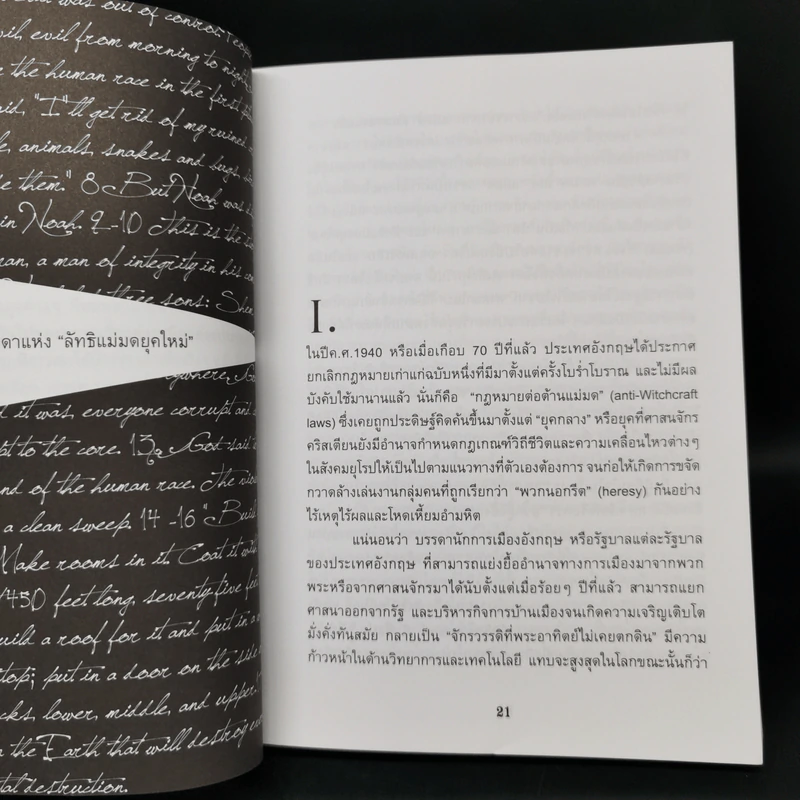 was out of control
evil evil from morning to night
the human race in the first
said, "I'll get rid of my ruined
animals, snakes and bugs,
them." 8 But Noah was
in Noah. 9-10 This is the
man, a man of integrity in his
three sons: Shem,
ดาแห่ง “ลัทธิแม่มดยุคใหม่”
it was, everyone corrupt and
to the core. 13 God said
end of the human race. The
a clean sweep. 14-16 "Build
Make rooms in it. Coat it with
450 feet long, seventy five feet
build a roof for it and put in a
top; put in a door on the side
lower, middle, and upper.
on the Earth that will destroy
total destruction.
I.
ในปีค.ศ.1940 หรือเมื่อเกือบ 70 ปีที่แล้ว ประเทศอังกฤษได้ประกาศ
ยกเลิกกฎหมายเก่าแก่ฉบับหนึ่งที่มีมาตั้งแต่ครั้งโบร่ำโบราณ และไม่มีผล
บังคับใช้มานานแล้ว นั่นก็คือ “กฎหมายต่อต้านแม่มด” (anti-Witchcraft
laws) ซึ่งเคยถูกประดิษฐ์คิดค้นขึ้นมาตั้งแต่ “ยุคกลาง” หรือยุคที่ศาสนจักร
คริสเตียนยังมีอำนาจกำหนดกฎเกณฑ์วิถีชีวิตและความเคลื่อนไหวต่างๆ
ในสังคมยุโรปให้เป็นไปตามแนวทางที่ตัวเองต้องการ จนก่อให้เกิดการขจัด
กวาดล้างเล่นงานกลุ่มคนที่ถูกเรียกว่า “พวกนอกรีต” (heresy) กันอย่าง
ไร้เหตุไร้ผลและโหดเหี้ยมอำมหิต
แน่นอนว่า บรรดานักการเมืองอังกฤษ หรือรัฐบาลแต่ละรัฐบาล
ของประเทศอังกฤษ ที่สามารถแย่งยื้ออำนาจทางการเมืองมาจากพวก
พระหรือจากศาสนจักรมาได้นับตั้งแต่เมื่อร้อยๆ ปีที่แล้ว สามารถแยก
ศาสนาออกจากรัฐ และบริหารกิจการบ้านเมืองจนเกิดความเจริญเติบโต
มั่งคั่งทันสมัย กลายเป็น “จักรวรรดิที่พระอาทิตย์ไม่เคยตกดิน” มีความ
ก้าวหน้าในด้านวิทยาการและเทคโนโลยี แทบจะสูงสุดในโลกขณะนั้นก็ว่า
21